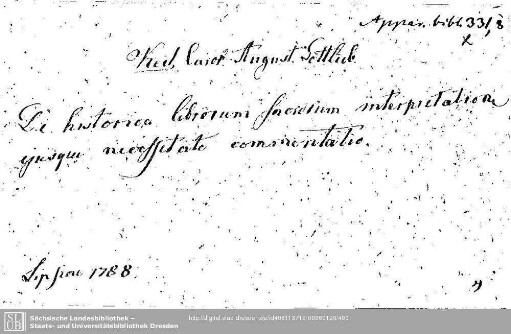 Appar. bibl. 331,8
x
Keil, Carol. August. Gottlieb
De historica librorum sacrorum interpretatione
ejusque necessitate commentatio.
Lipsiae 1788
Sächsische Landesbibliothek –
Staats- und Universitätsbibliothek Dresden